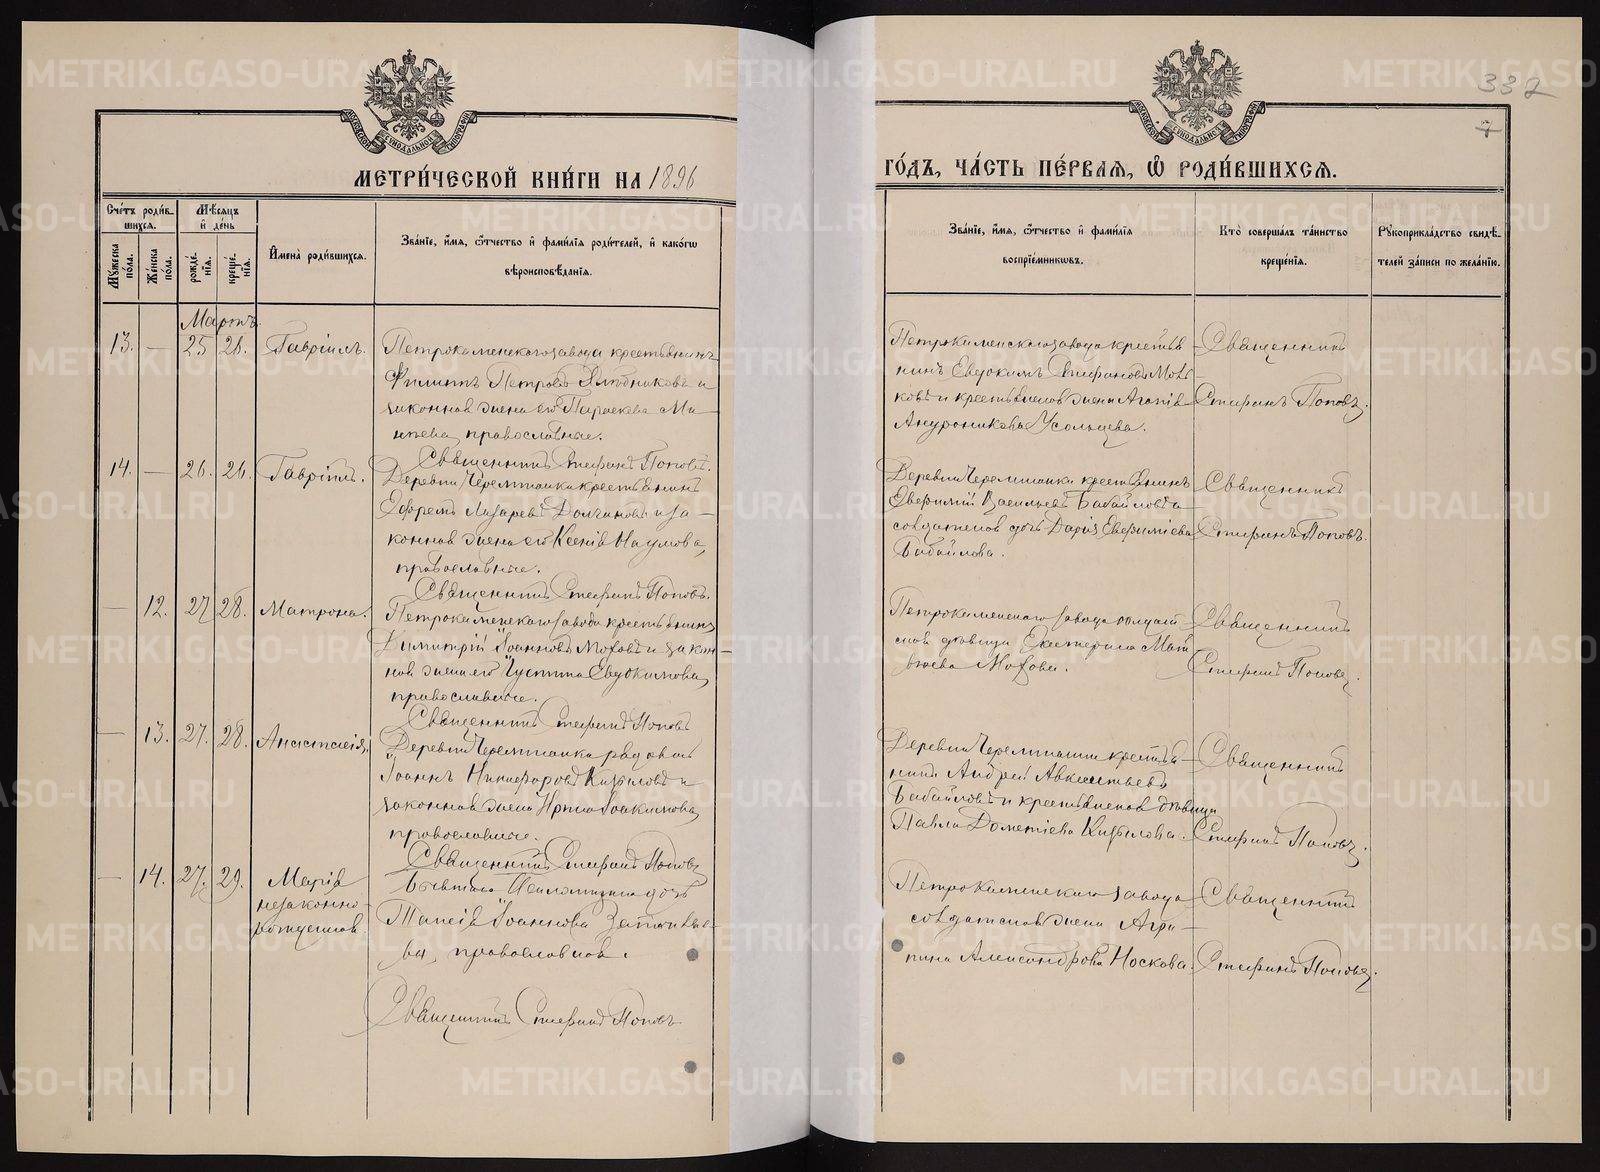 МЕТРИ́ЧЕСКОЙ КНИ́ГИ НА 1896
ГО́ДЪ, ЧА́СТЬ ПЕ́РВАЯ, Ѡ҆ РОДИ́ВШИХСЯ.
332
7
Сче́тъ роди́в-
шихся.
Му́жеска по́ла.
Же́нска по́ла.
Мѣ́сяцъ
и҆ де́нь
рожде́-
нїя.
креще́-
нїя.
И҆мена̀ роди́вшихся.
Зва́нїе, и҆́мя, ѻ҆́тчество и҆ фами́лїя роди́телей, и҆ како́гѡ
вѣроисповѣ́данїя.
Зва́нїе, и҆́мя, ѻ҆́тчество и҆ фами́лїя
воспрїе́мниковъ.
Кто̀ соверша́лъ та́инство
креще́нїя.
Рꙋкоприкла́дство свидѣ́-
телей за́писи по жела́нїю.
Мартъ.
13. — 25 26. Гавріилъ.
Петрокаменскаго завода крестьянинъ
Филиппъ Петровъ и
законная жена его Параскева Ма-
православные.
Священникъ Стефанъ Поповъ.
Петрокаменскаго завода крестья-
нинъ Евдокимъ Стефановъ Мох-
ковъ и крестьянская жена Агапія
Андроникова Усольцева.
Священникъ
Стефанъ Поповъ.
14. — 26. 26. Гавріилъ.
Деревни Черемшанки крестьянинъ
Ефремъ Лазаревъ и за-
конная жена его Ксенія Наумова,
православные.
Священникъ Стефанъ Поповъ.
Деревни Черемшанки крестьянинъ
Евфимій Васильевъ Бабайловъ и
солдатская дочь Дарія Евфиміева
Бабайлова.
Священникъ
Стефанъ Поповъ.
— 12. 27 28. Матрона.
Петрокаменскаго завода крестьянинъ
Димитрій Іоанновъ Моховъ и закон-
ная жена его Іустина Евдокимова,
православные.
Священникъ Стефанъ Поповъ
Петрокаменскаго завода солдат-
ская дѣвица Екатерина Мат-
вѣева Мохова.
Священникъ
Стефанъ Поповъ.
— 13. 27. 28. Анастасія.
Деревни Черемшанки рядовой
Іоаннъ Никифоровъ Кизиловъ и
законная жена Ирина Іоакимова,
православные.
Священникъ Стефанъ Поповъ
Деревни Черемшанки крестья-
нинъ Андрей Авксентьевъ
Бабайловъ и крестьянская дѣвица
Павла Дометіева Кизилова.
Священникъ
Стефанъ Поповъ.
— 14. 27. 29. Марія
незаконно-
рожденная.
Бывшаго дочь
Таисія Іоаннова
ва, православная.
Священникъ Стефанъ Поповъ
Петрокаменскаго завода
солдатская жена Агри-
пина Александрова Носкова.
Священникъ
Стефанъ Поповъ.
METRIKI.GASO-URAL.RU